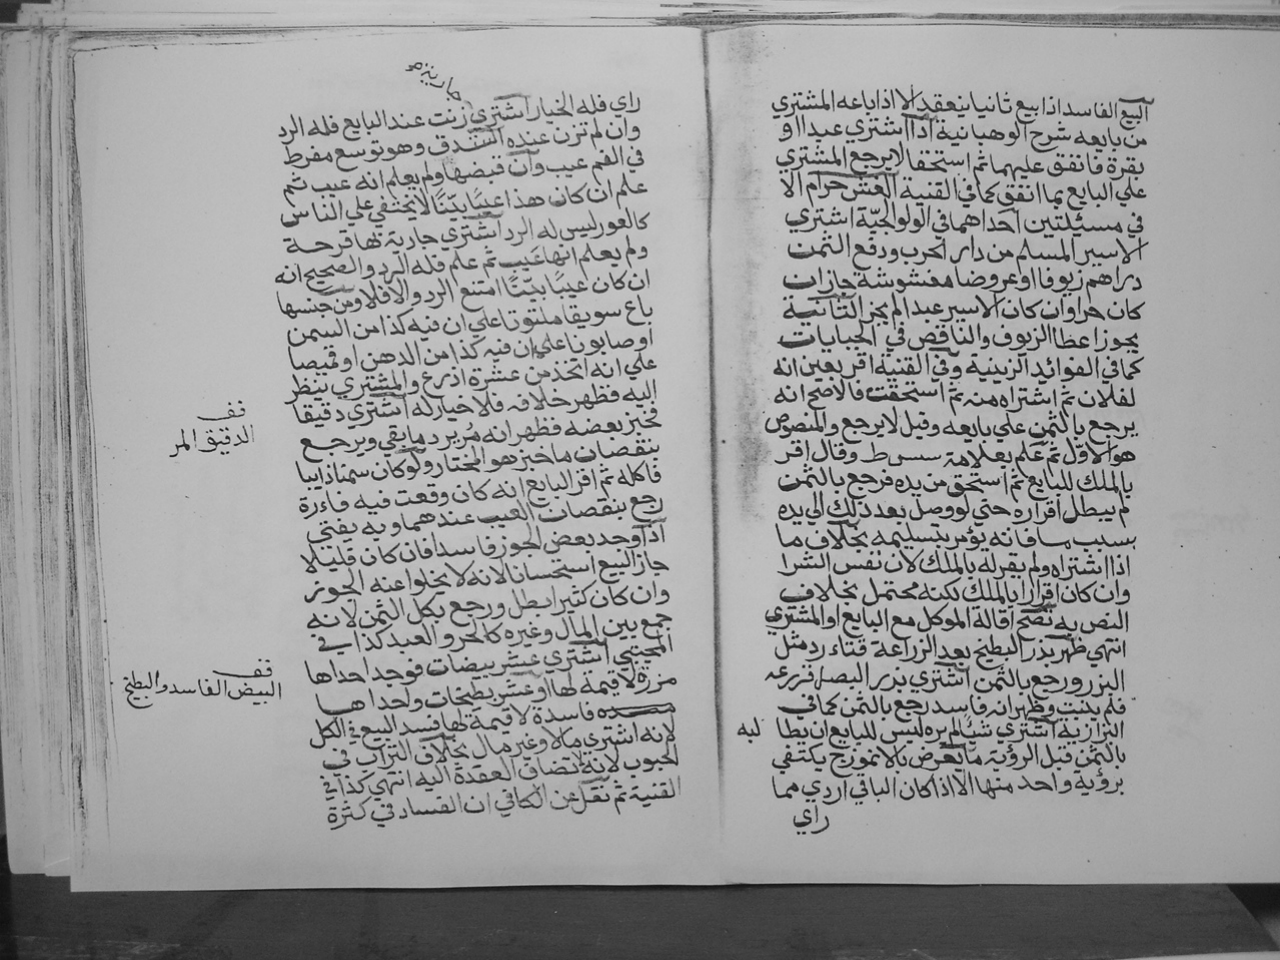 البيع الفاسد اذا بيع ثانيا ينعقد الا اذا باعه المشتري
من بايعه شرح الوهبانية اذا اشتري عبدا او
بقرة فانفق عليهما ثم استحقا لا يرجع المشتري
علي البايع بما انفق كما في القنية الغش حرام الا
في مسئلتين احداهما في الولوالجيّة اشتري
الاسير المسلم من دار الحرب ودفع الثمن
دراهم زيوفا او عروضا مغشوشة جاز ان
كان حرا وان كان الاسير عبدا لم يجز الثانية
يجوز اعطا الزيوف والناقص في الجبايات
كما في الفوائد الزينية وفي القنية اقر بعين انه
لفلان ثم اشتراه منه ثم استحقت فالاصح انه
يرجع بالثمن علي بايعه وقيل لا يرجع والمنصوص
هو الاول ثم علم بعلامة سس ط وقال اقر
بالملك للبايع ثم استحق من يده فرجع بالثمن
لم يبطل اقراره حتي لو وصل بعد ذلك الي يده
بسبب ما فانه يؤمر بتسليمه بخلاف ما
اذا اشتراه ولم يقر له بالملك لان نفس الشرا
وان كان اقرارا بالملك لكنه محتمل بخلاف
النص به تصح اقالة الموكل مع البايع او المشتري
انتهي ظهر بذر البطيخ بعد الزراعة قثاء رد مثل
البزر ورجع بالثمن اشتري بذر البصل فزرعه
فلم ينبت وظهر انه فاسد رجع بالثمن كما في
البزازية اشتري شيئا لم يره ليس للبايع ان يطا
لبه
بالثمن قبل الرؤية ما يعرض بالانموزج يكتفي
برؤية واحد منها الا اذا كان الباقي اردي مما
راي
جارية
راي فله الخيار اشتري زنت عند البايع فله الرد
وان لم تزن عنده الشدق وهو توسع مفرط
في الفم عيب وان قبضها ولم يعلم انه عيب ثم
علم ان كان هذا عيبًا بيّنًا لا يختفي علي الناس
كالعور ليس له الرد اشتري جارية بها قرحة
ولم يعلم انها عيب ثم علم فله الرد والصحيح انه
ان كان عيبًا بيّنًا امتنع الرد والا فلا ومن جنسها
باع سويقا ملتوتا علي ان فيه كذا من السمن
او صابونا علي ان فيه كذا من الدهن او قميصا
علي انه اتخذ من عشرة اذرع والمشتري ينظر
اليه فظهر خلافه فلا خيار له اشتري دقيقا
فخبز بعضه فظهر انه مُر يرد ما بقي ويرجع
بنقصان ما خبز هو المختار ولو كان سمنا ذايبا
فاكله ثم اقر البايع انه كان وقعت فيه فاءرة
رجع بنقصان العيب عندهما وبه يفتي
اذا وجد بعض الجوز فاسدا فان كان قليلا
جاز البيع استحسانا لانه لا يخلوا عنه الجوز
وان كان كثيرا بطل ورجع بكل الثمن لانه
جمع بين المال وغيره كالحر والعبد كذا في
المجتبي اشتري عشر بيضات فوجد احداها
مزرة لا قيمة لها او عشر بطيخات واحداها
فاسدة لا قيمة لها فسد البيع في الكل
لانه اشتري مالا وغير مال بخلاف التراب في
الحبوب لانه انضاف العقدة اليه انتهي كذا في
القنية ثم نقل عن الكافي ان الفساد في كثرة
قف
الدقيق المر
قف
البيض الفاسد والبطيخ